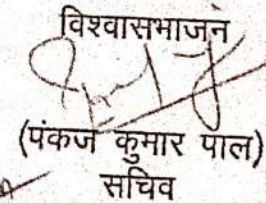 विश्वासभाजन
(पंकज कुमार पाल)
सचिव